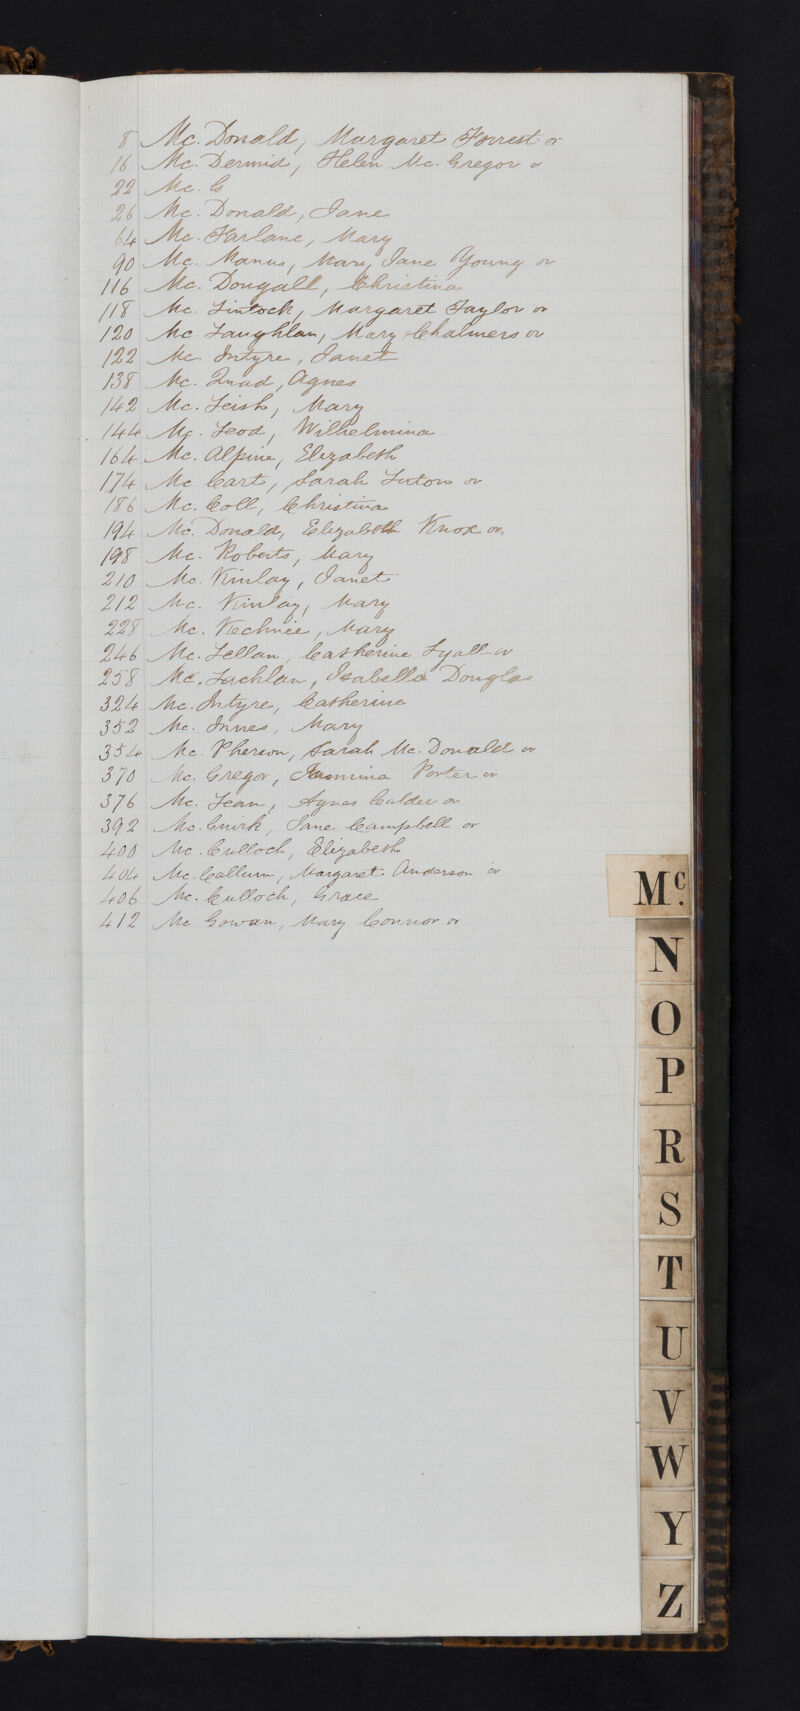 8 Mc. Donald, Margaret Forrest or
16 Mc. Dermid, Helen Mc. Gregor or
22 Mc. G
26 Mc. Donald, Jane
64 Mc. Farlane, Mary
90 Mc. Manus, Mary Jane Young or
116 Mc. Dougall, Christina
118 Mc. Lintock, Margaret Taylor or
120 Mc. Laughlan, Mary Chalmers or
122 Mc. Intyre, Janet
138 Mc. Quad, Agnes
142 Mc. Leish, Mary
144 Mc. Leod, Wilhelmina
164 Mc. Alpine, Elizabeth
174 Mc. Cart, Sarah or
186 Mc. Coll, Christina
194 Mc. Donald, Elizabeth Knox or
198 Mc. Roberts, Mary
210 Mc. Kinlay, Janet
212 Mc. Kinlay, Mary
228 Mc. Kechnie, Mary
246 Mc. Lellan, Catherine Lyall or
258 Mc. Lachlan, Isabella Douglas
324 Mc. Intyre, Catherine
352 Mc. Innes, Mary
354 Mc. Pherson, Sarah Mc. Donald or
370 Mc. Gregor, Porter or
376 Mc. Lean, Agnes Calder or
392 Mc. Guirk, Jane Campbell or
400 Mc. Culloch, Elizabeth
404 Mc. Callum, Margaret Anderson or
406 Mc. Culloch, Grace
412 Mc. Gowan, Mary Connor or
Mc.
N
O
P
R
S
T
U
V
W
Y
Z